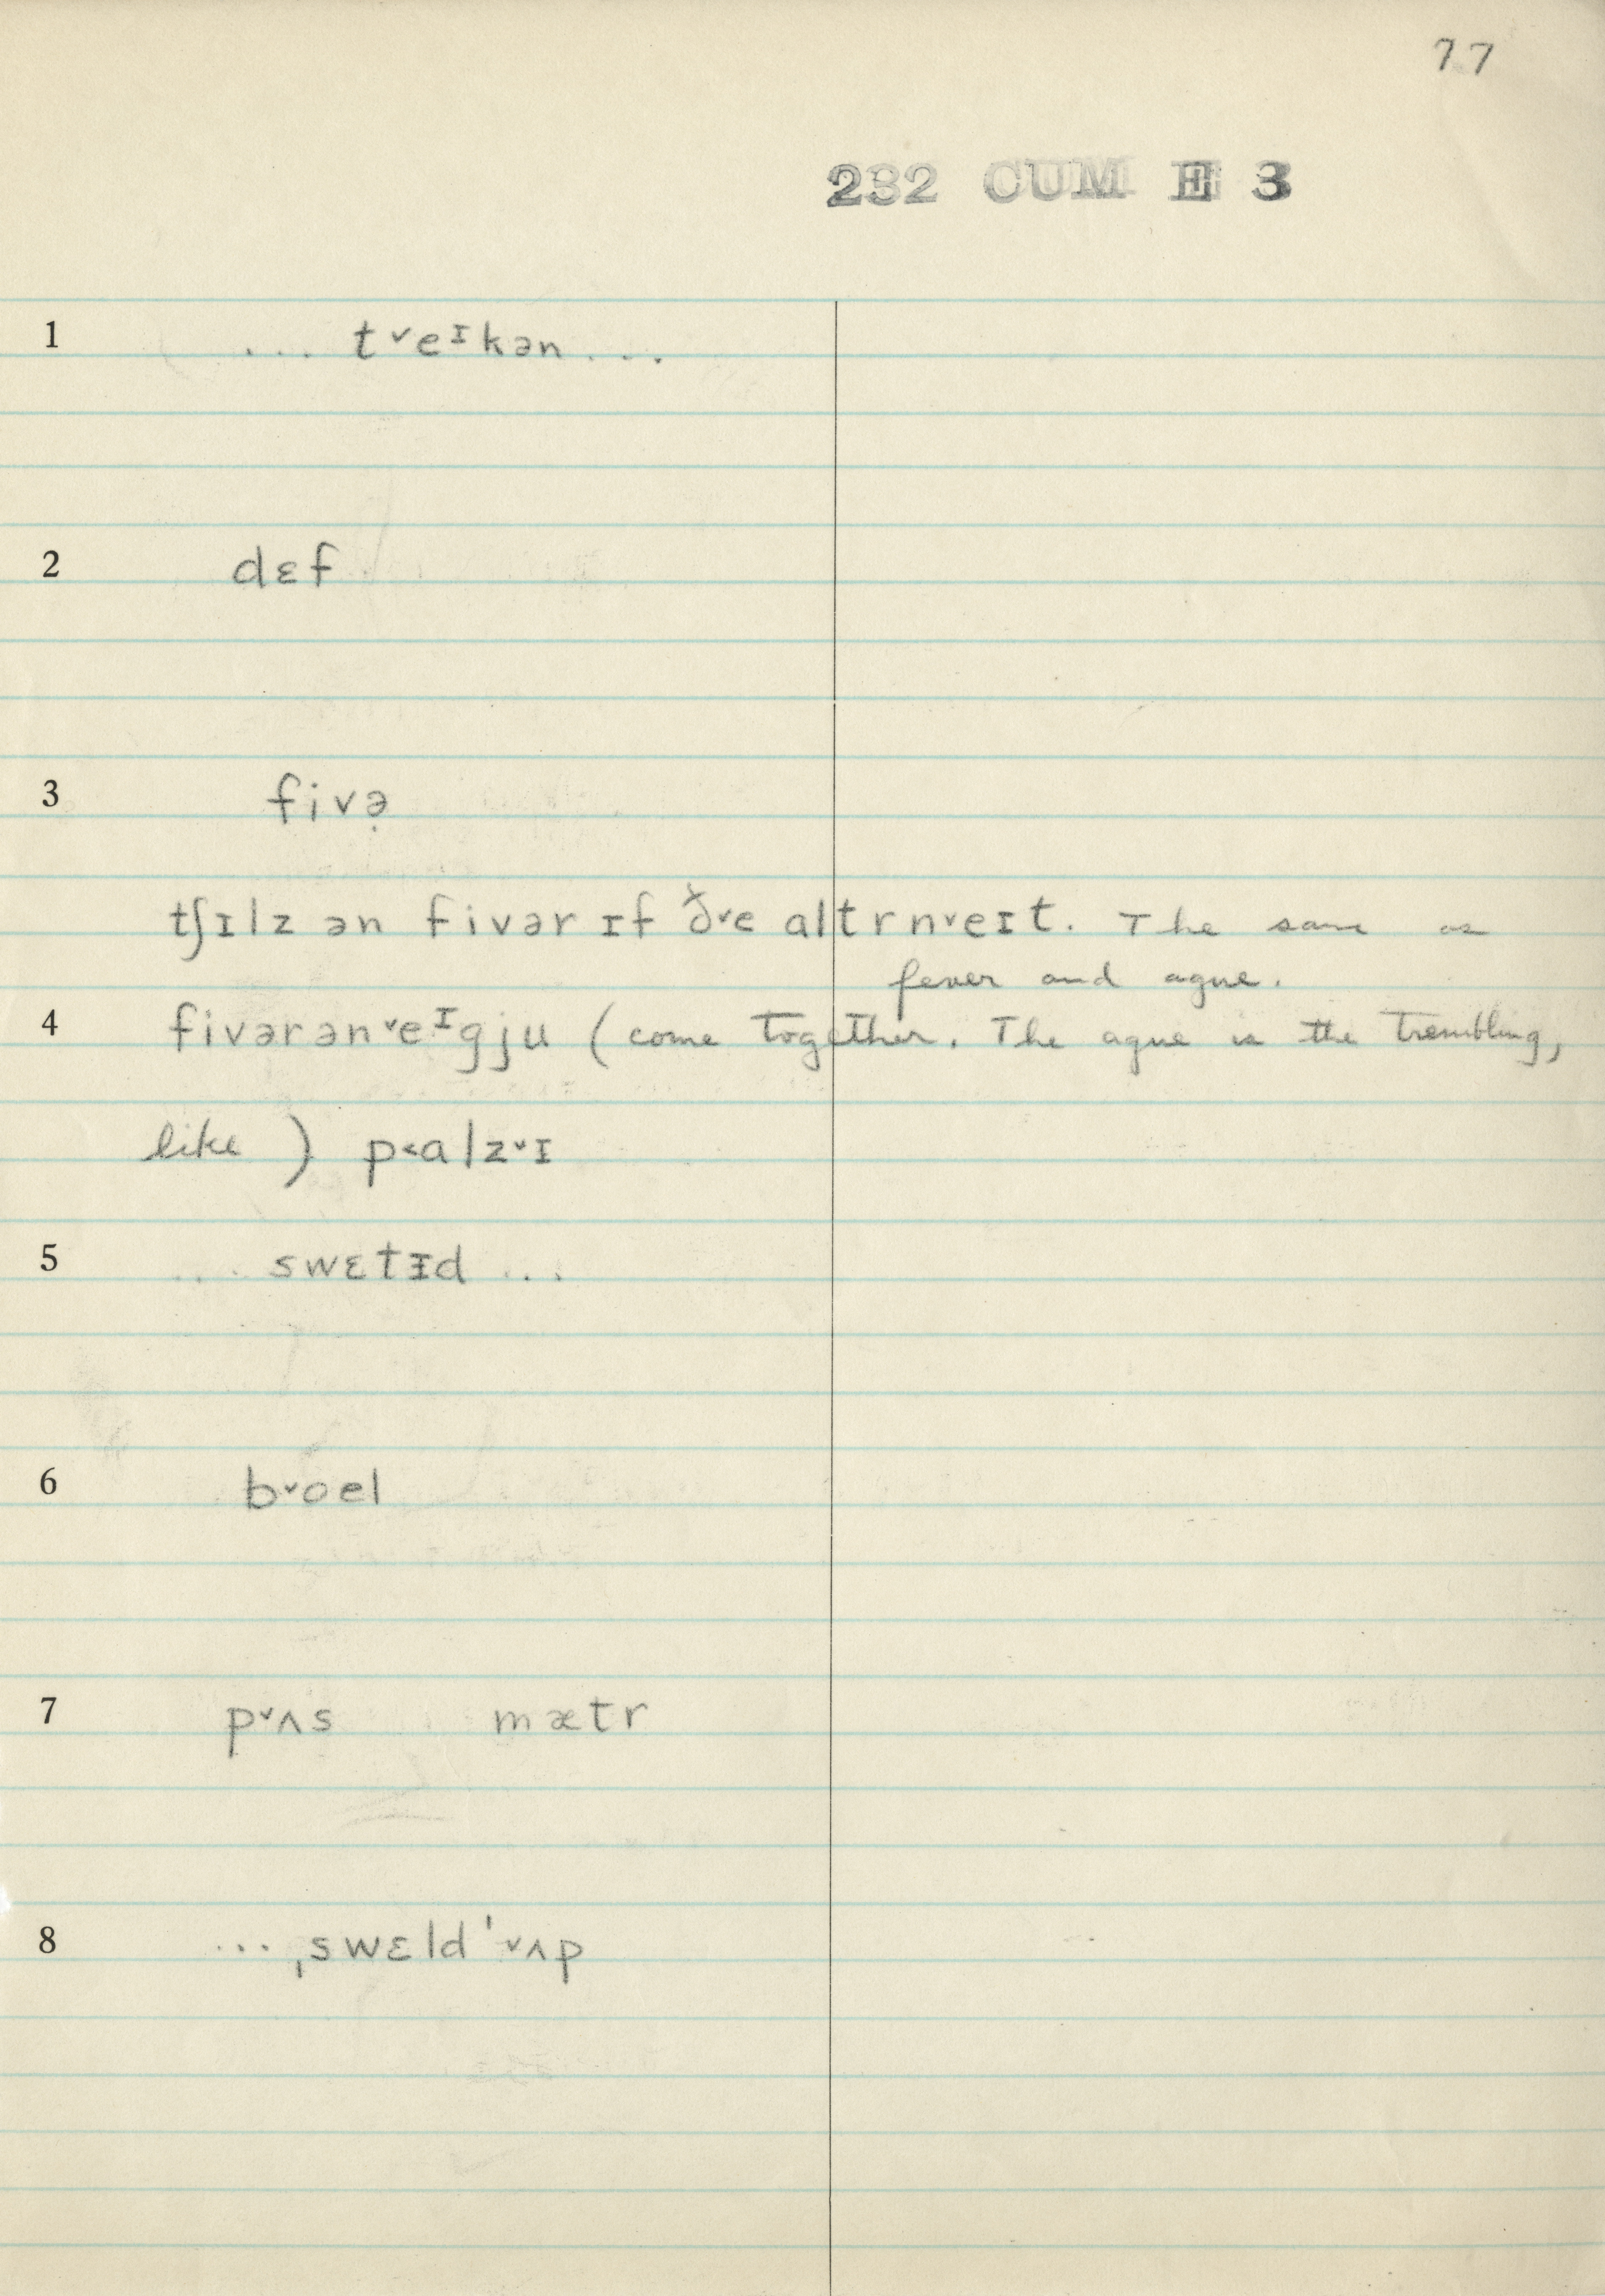 77
232 CUM H 3
1 ... t˅eᶦkən ...
2 dɛf
3 fivə̣
tʃɪlz ən fivər ɪf ð˅e altrn˅eɪt. The same as
fever and ague.
4 fivərən˅eᶦgju (come together. The ague is the trembling,
like) p˂alz˅ɪ
5 ... swɛtɪd ...
6 b˅oel
7 p˅ʌs mætr
8 ... ˌswɛldˈ˅ʌp